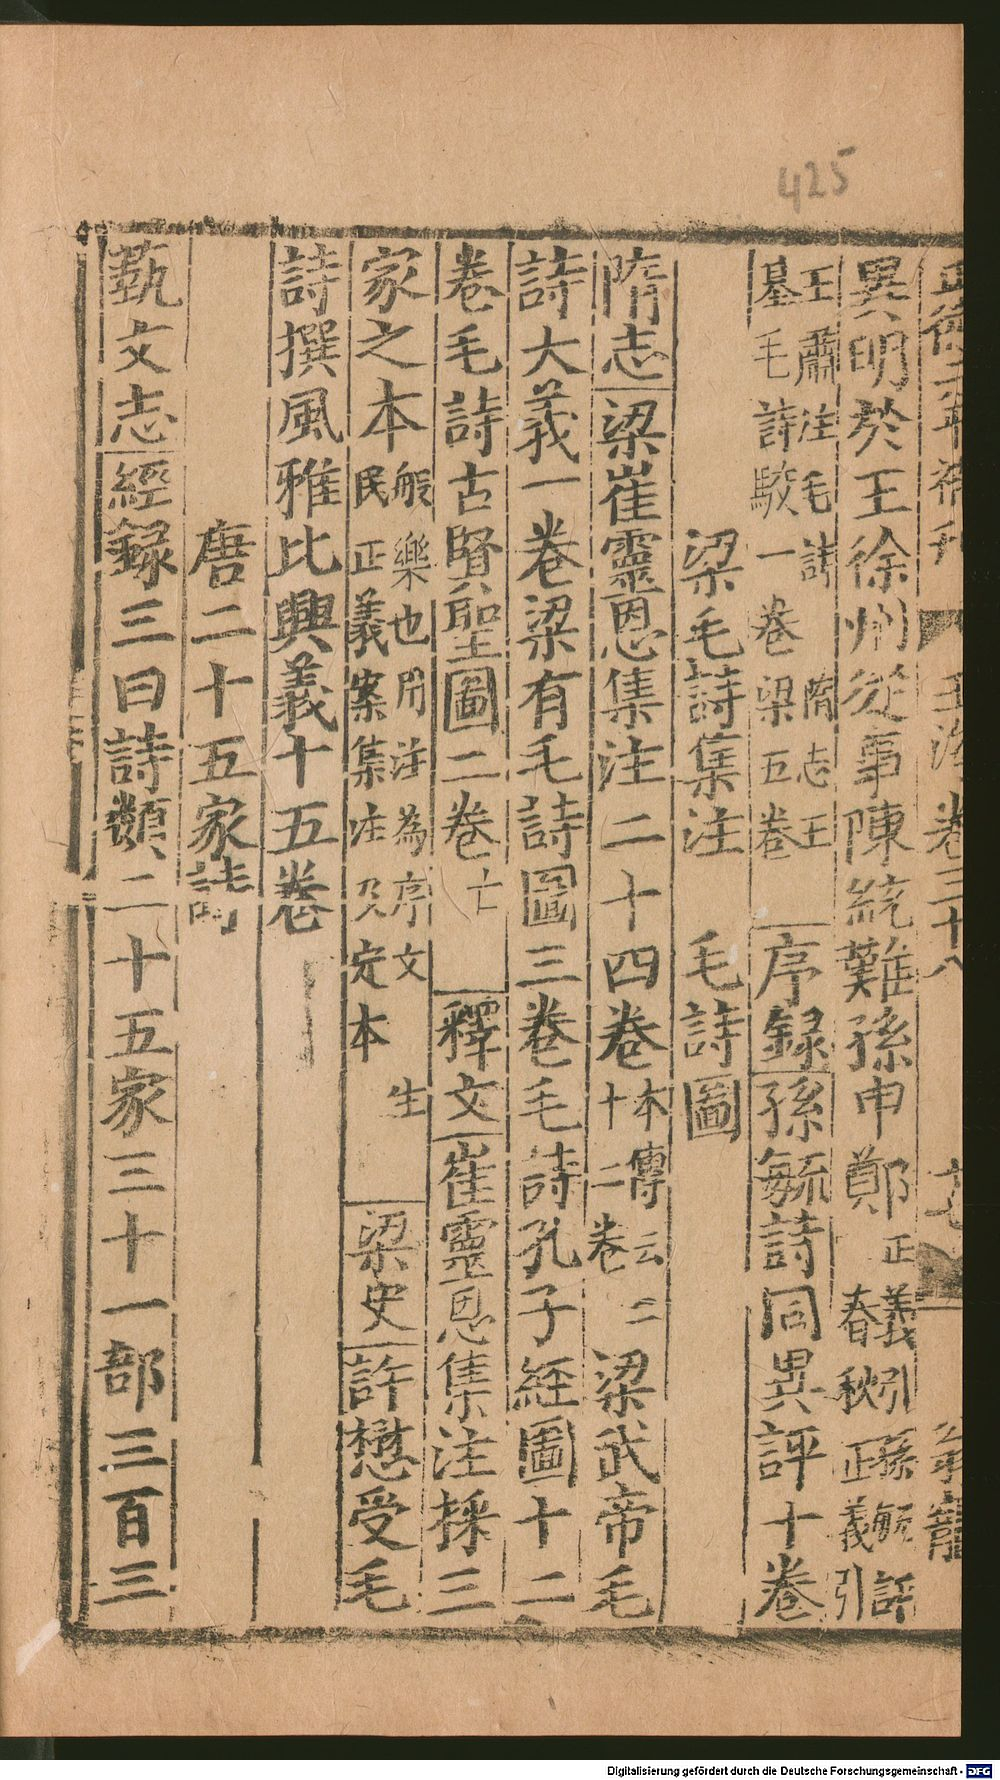 425
正德二年補刊 玉海卷三十八
異明於王徐州從事陳統難孫申鄭正義引孫毓評春秋正義引
王肅注毛詩隋志王基毛詩駮一卷梁五卷 序録孫毓詩同異評十卷
梁毛詩集注 毛詩圖
隋志梁崔靈恩集注二十四卷本傳云二十二卷梁武帝毛
詩大義一卷梁有毛詩圖三卷毛詩孔子經圖十二
卷毛詩古賢聖圖二卷亡 釋文崔靈恩集注採三
家之本般樂也用注為序文生民正義案集注及定本 梁史許懋受毛
詩撰風雅比興義十五卷
唐二十五家詩
蓺文志經録三曰詩類二十五家三十一部三百三
Digitalisierung gefördert durch die Deutsche Forschungsgemeinschaft - DFG